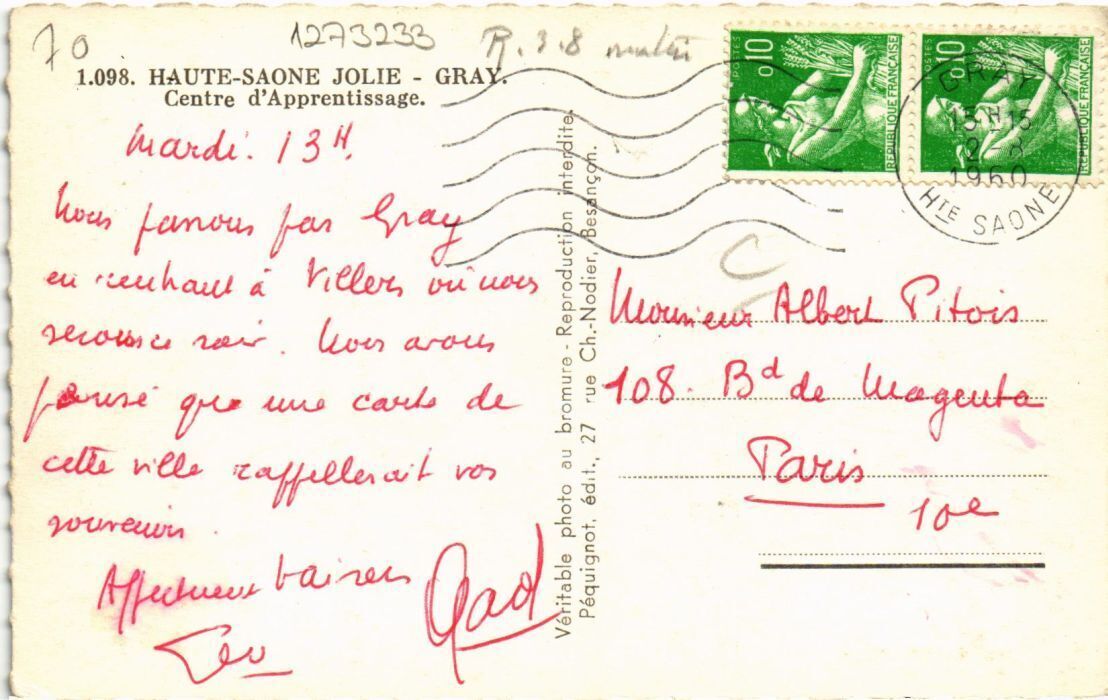 70
1273233
1.098. HAUTE-SAONE JOLIE - GRAY.
Centre d'Apprentissage.
Mardi. 13 H.
Nous passons par Gray
en rentrant à Villers où nous
serons ce soir. Nous avons
pensé que une carte de
cette ville rappellerait vos
souvenirs.
Affectueux baisers
Véritable photo au bromure - Reproduction interdite.
Péquignot, édit., 27 rue Ch.-Nodier, Besançon.
POSTES 0,10 RÉPUBLIQUE FRANÇAISE
POSTES 0,10 RÉPUBLIQUE FRANÇAISE
GRAY
15 H 15
2-8
1960
HTE SAONE
Monsieur Albert Pitois
108. Bd de Magenta
Paris
10e